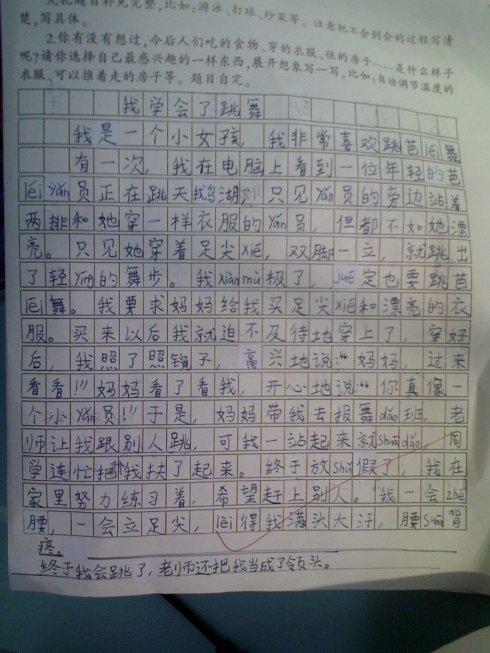 先把题目补充完整,比如:游泳、打球、炒菜等。注意把不会到会的过程写清
楚,写具体。
2.你有没有想过,今后人们吃的食物、穿的衣服、住的房子……是什么样子
呢?请你选择自己最感兴趣的一样东西,展开想象写一写。比如:自动调节温度的
衣服、可以推着走的房子等。题目自定。
我学会了跳舞
我是一个小女孩,我非常喜欢跳芭lěi舞
有一次,我在电脑上看到一位年轻的芭
lěi yǎn员正在跳天鹅湖,只见yǎn员的旁边站着
两排和她穿一样衣服的yǎn员,但都不如她漂
亮。只见她穿着足尖xié,双脚一立,就跳出
了轻yíng的舞步。我xiàn mù极了,jué定也要跳芭
lěi舞。我要求妈妈给我买足尖xié和漂亮的衣
服。买来以后我就迫不及待地穿上了,穿好
后,我照了照镜子,高兴地说:“妈妈,过来
看看!”妈妈看了看我,开心地说:“你真像一
个小yǎn员!”于是,妈妈带我去报舞dǎo班,老
师让我跟别人跳,可我一站起来就shuāi dǎo,同
学连忙把我扶了起来。终于放shǔ假了,我在
家里努力练习着,希望赶上别人。我一会zhé
腰,一会立足尖,lèi得我满头大汗,腰suān背
疼。
终于我会跳了,老师还把我当成了领头。